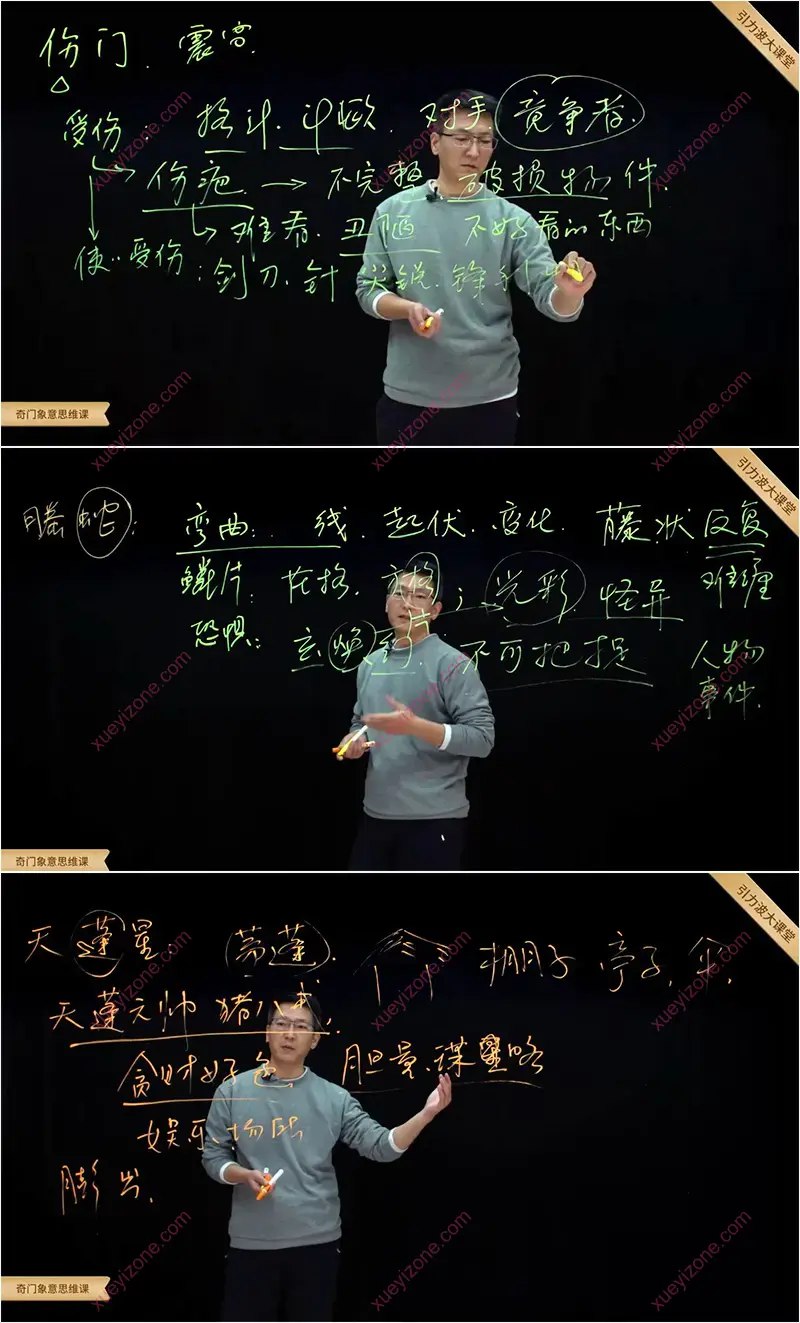 引力波大课堂
伤门、震宫.
受伤: 格斗、斗殴、对手、竞争者.
伤疤 → 不完整 破损物件.
难看、丑陋 不好看的东西
使..受伤: 剑刀、针 尖锐、锋利
奇门象意思维课
xueyizone.com
引力波大课堂
螣蛇: 弯曲: 线、起伏、变化、藤状 反复
鳞片: 花格、方格 ; 光彩、怪异 难缠
恐惧: 玄焕 不可把捉 人物
事件.
奇门象意思维课
xueyizone.com
引力波大课堂
天蓬星: 茅蓬. 棚子 亭子, 伞,
天蓬元帅 猪八戒,
贪财好色、胆量、谋略
娱乐场所
膨出、
奇门象意思维课
xueyizone.com